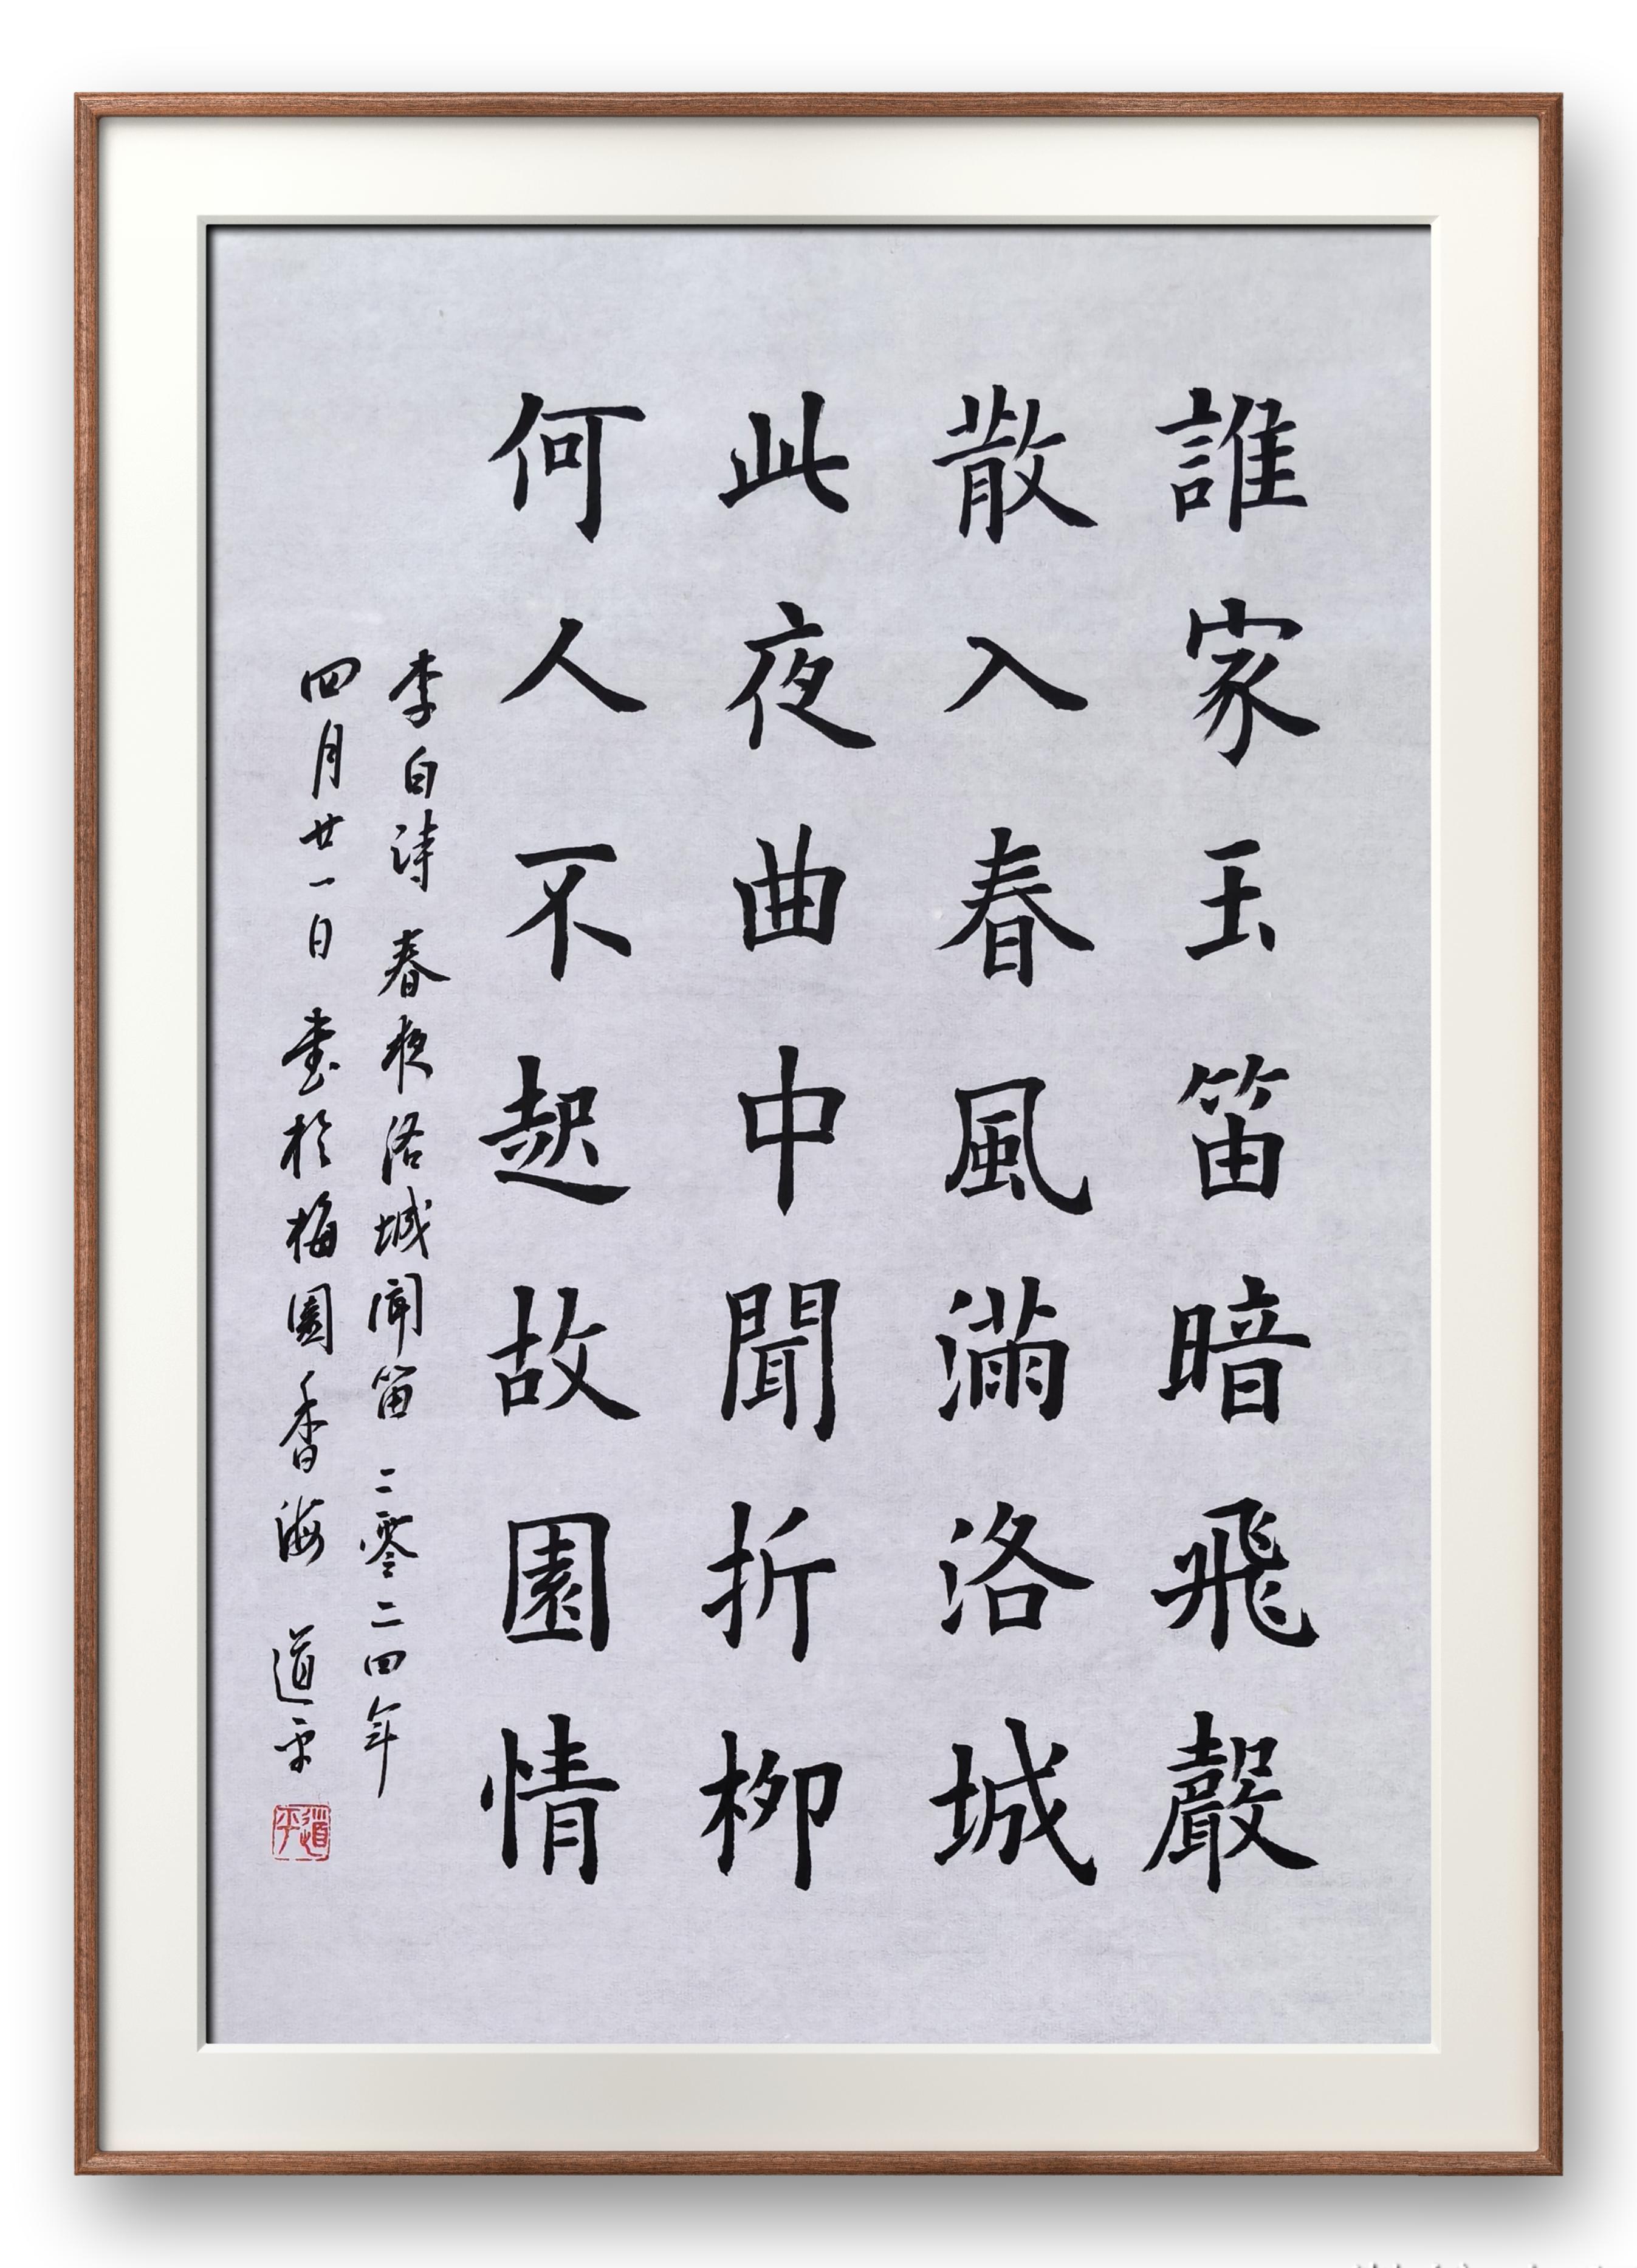 誰家玉笛暗飛聲
散入春風滿洛城
此夜曲中聞折柳
何人不起故園情
李白诗春夜洛城闻笛二零二四年
四月廿一日書於梅園香海道平
道平